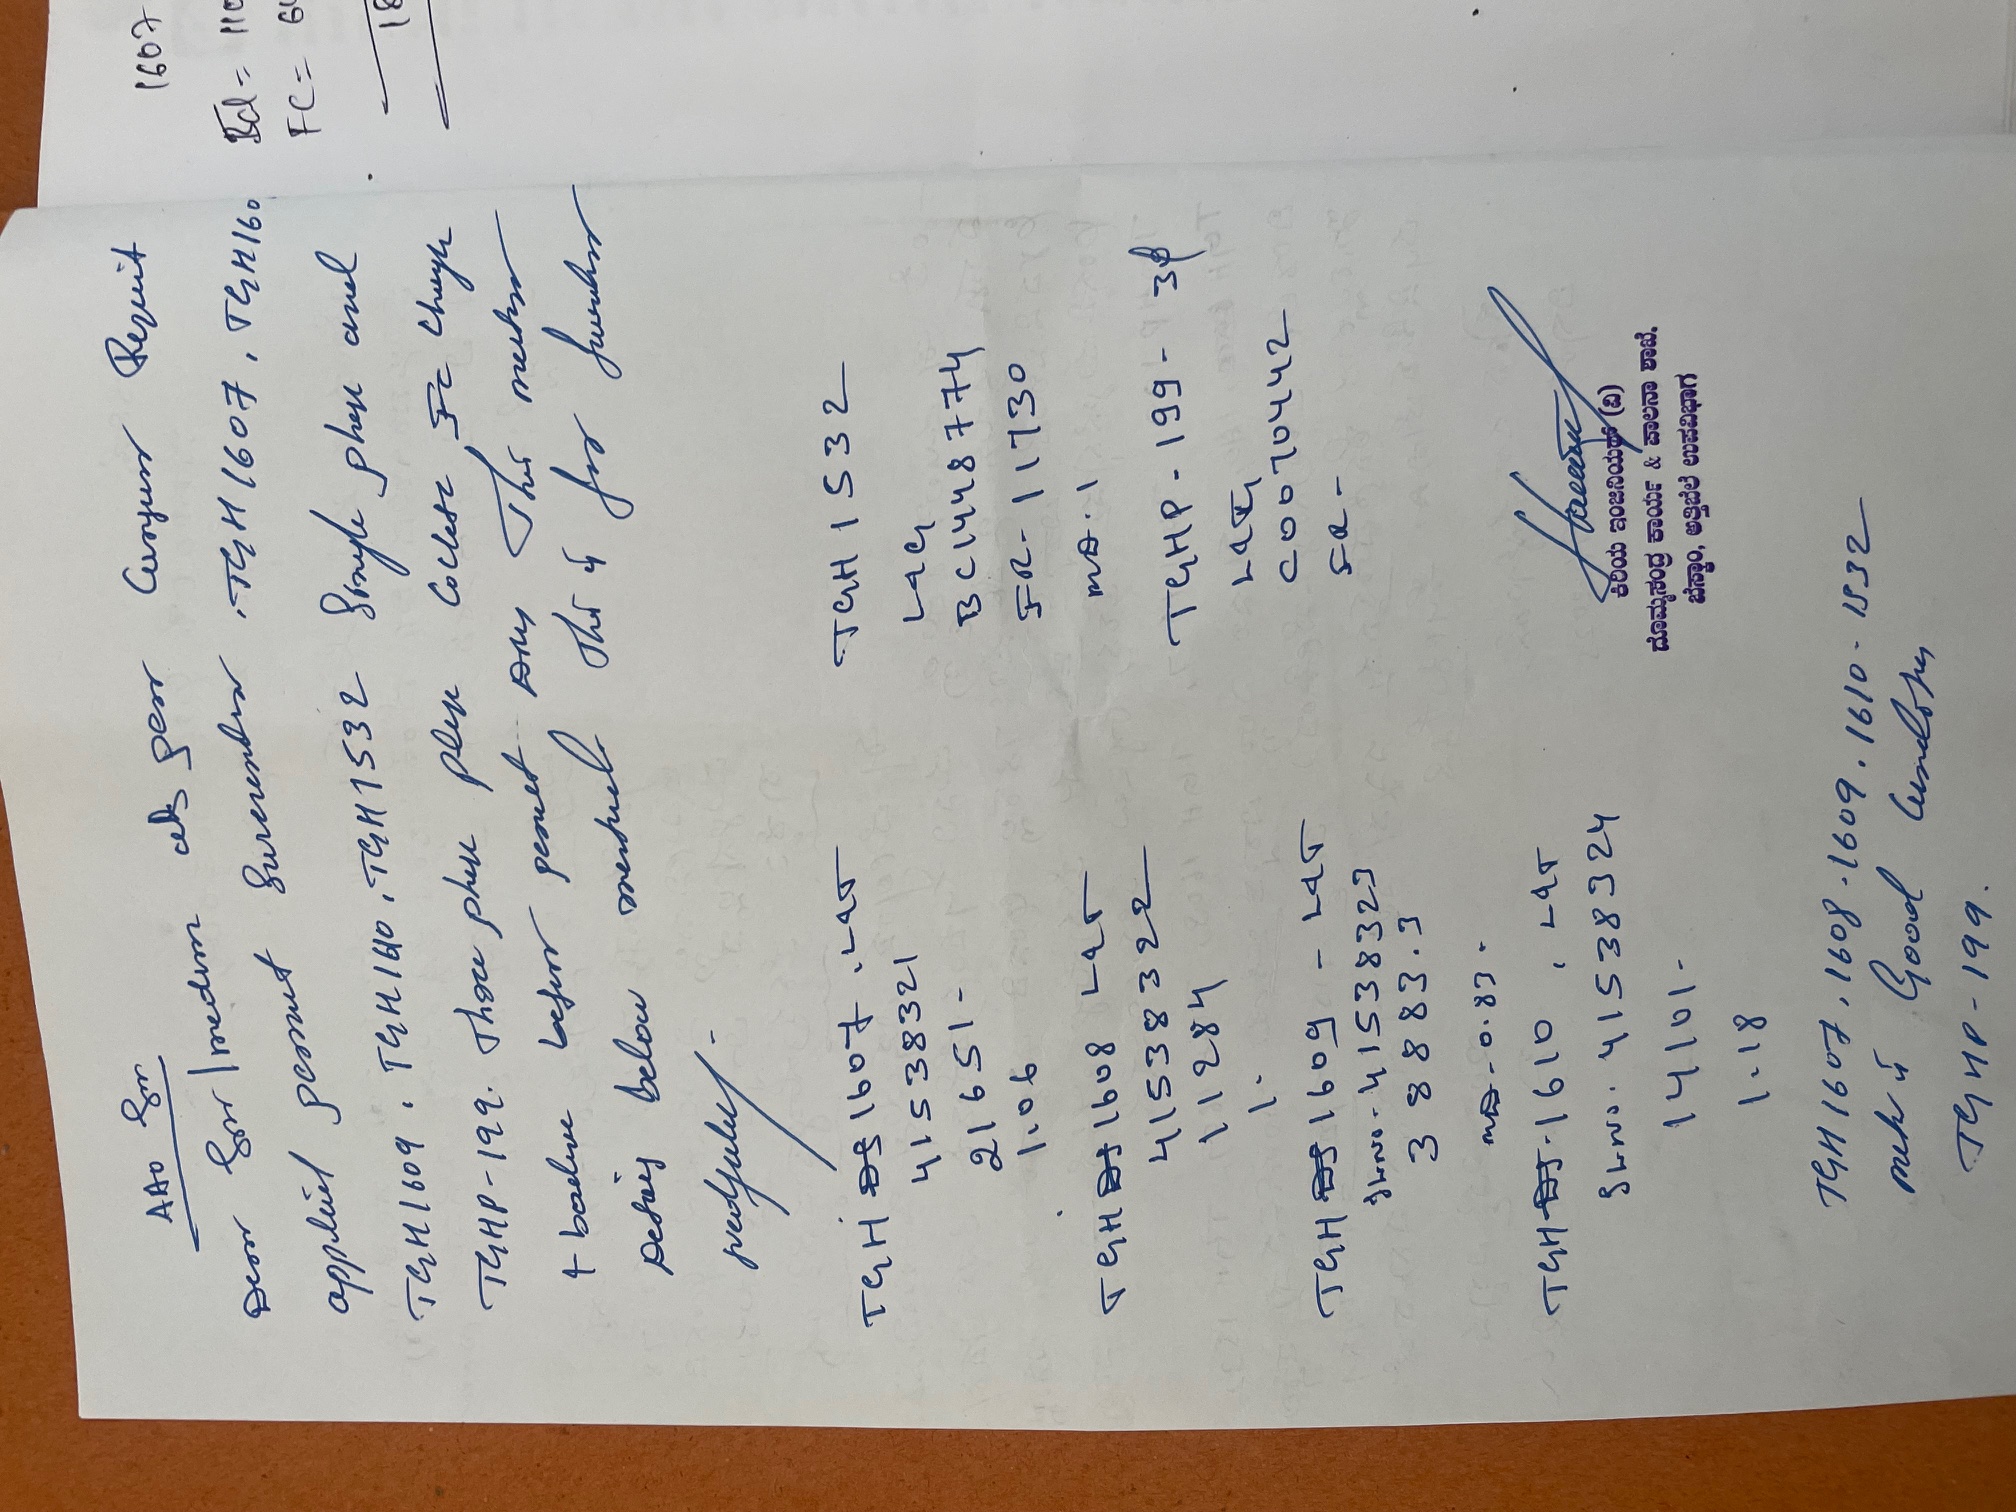 AAO Sir
Dear Sir/medam as per Consumer Request
applied permnt Surrender .TGH1607, TGH160
TGH1609, TGH1610, TGH1532 Single phase and
TGHP-199. Three phase please Collect Fc charge
+ before permnt. This meter
Details below mentiond. This is for further
TGH 1607. L&T
41538321
21651-
1.06
TGH 1608 L&T
41538322
11284
1.
TGH 1609 - L&T
SLNO. 41538323
38883.3
MD-0.83.
TGH-1610, L&T
SLNO. 41538324
14101-
1.18
TGH 1532
L&G
BC1448774
FR-11730
MD.1
TGHP-199-3φ
L&T
C0070442
FR-
ಕಿರಿಯ ಇಂಜಿನಿಯರ್ (ವಿ)
ದೊಮ್ಮಸಂದ್ರ ಕಾರ್ಯ & ಪಾಲನಾ ಶಾಖೆ.
ಬೆಸ್ಕಾಂ, ಅತ್ತಿಬೆಲೆ ಉಪವಿಭಾಗ
TGH1607.1608.1609.1610-1532
Good Condition
TGHP-199.
1607
Bd = 110
FC = 64
18